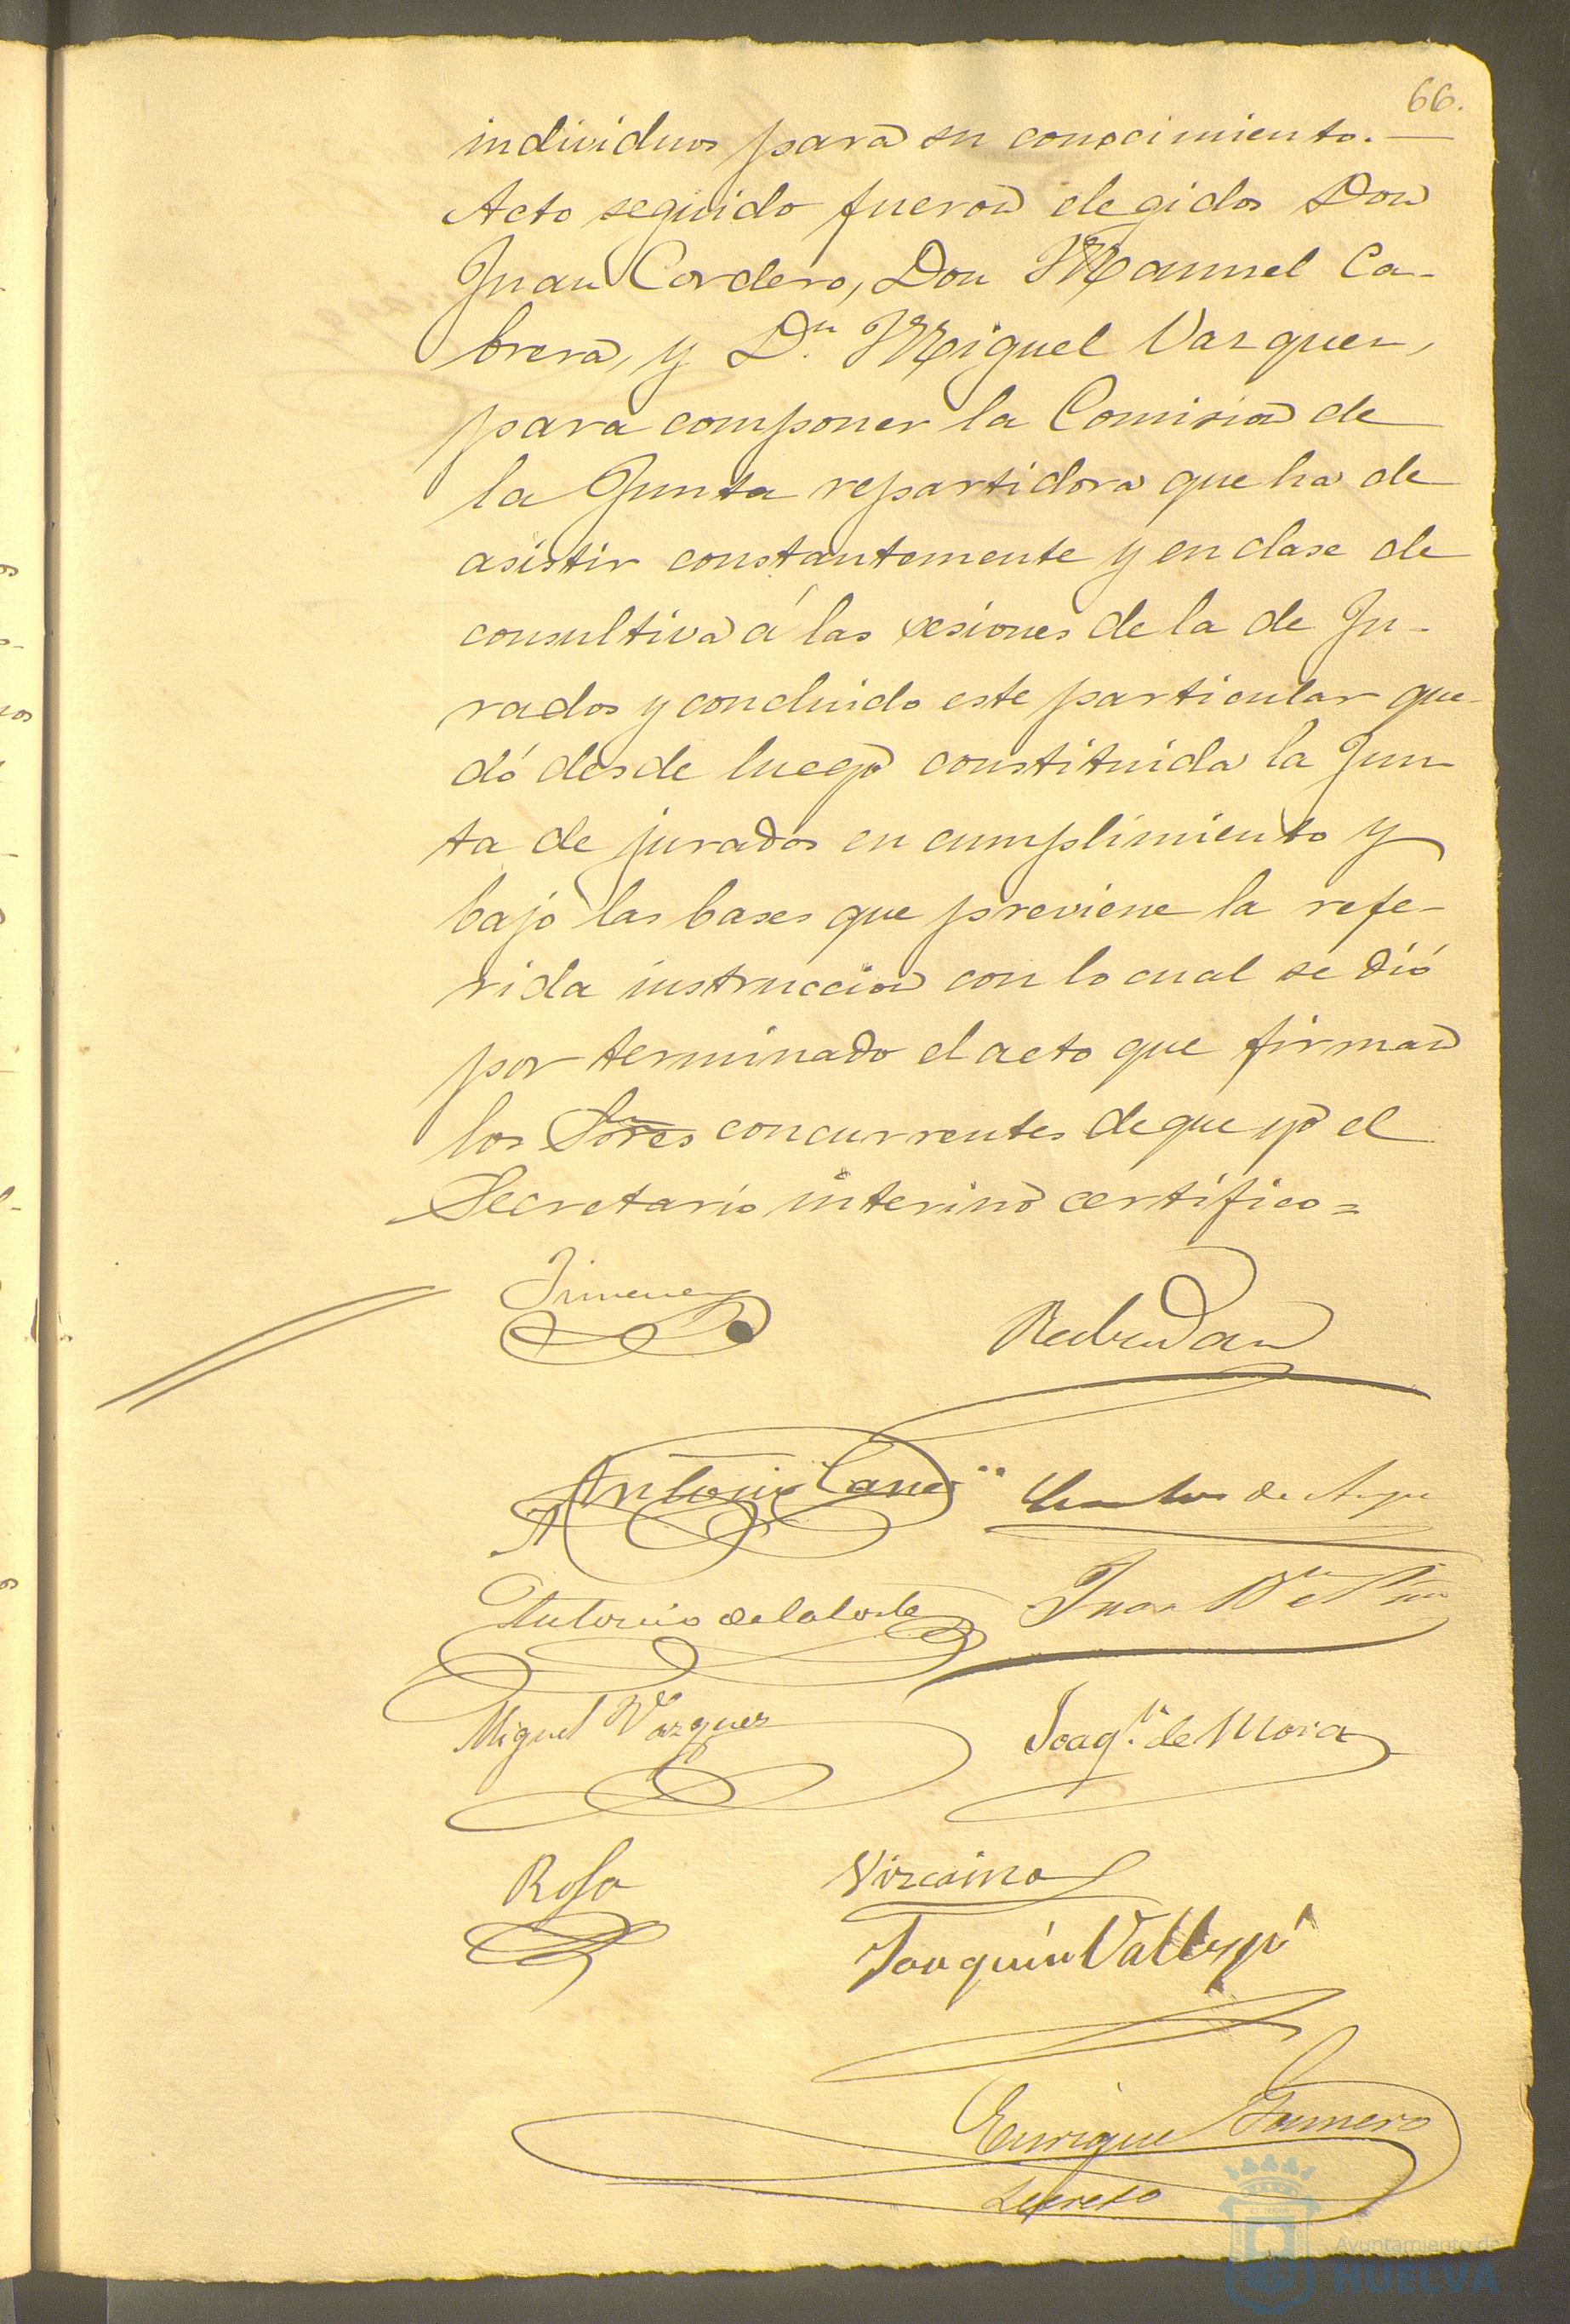 66.
individuos para su conocimiento. —
Acto seguido fueron elegidos Don
Juan Cordero, Don Manuel Ca-
brera, y D.n Miguel Vazquez,
para componer la Comision de
la Junta repartidora que ha de
asistir constantemente y en clase de
consultiva á las sesiones de la de Ju-
rados y concluido este particular que-
dó desde luego constituida la Jun-
ta de jurados en cumplimiento y
bajo las bases que previene la refe-
rida instruccion con lo cual se dió
por terminado el acto que firman
los Sores concurrentes de que yo el
Secretario interino certifico=
Jimenez
Antonio
Antonio de la Corte Juan
Miguel Vazquez Joaq.n de Mora
Rosa Vizcaino
Joaquin
Enrique
Secreto
Ayuntamiento de
HUELVA